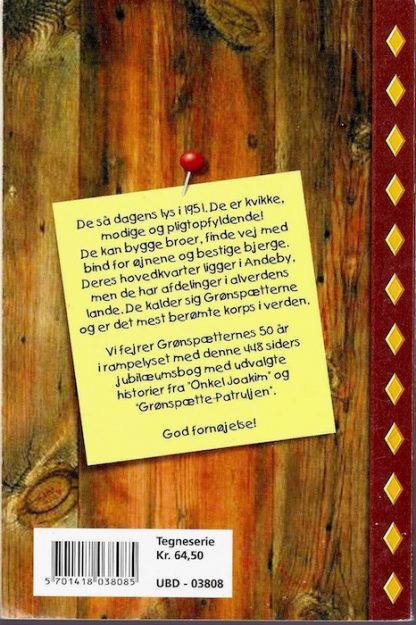 De så dagens lys i 1951. De er kvikke,
modige og pligtopfyldende!
De kan bygge broer, finde vej med
bind for øjnene og bestige bjerge.
Deres hovedkvarter ligger i Andeby,
men de har afdelinger i alverdens
lande. De kalder sig Grønspætterne
og er det mest berømte korps i verden.
Vi fejrer Grønspætternes 50 år
i rampelyset med denne 448 siders
jubilæumsbog med udvalgte
historier fra "Onkel Joakim" og
"Grønspætte-Patruljen".
God fornøjelse!
Tegneserie
Kr. 64,50
5 701418 038085
UBD - 03808